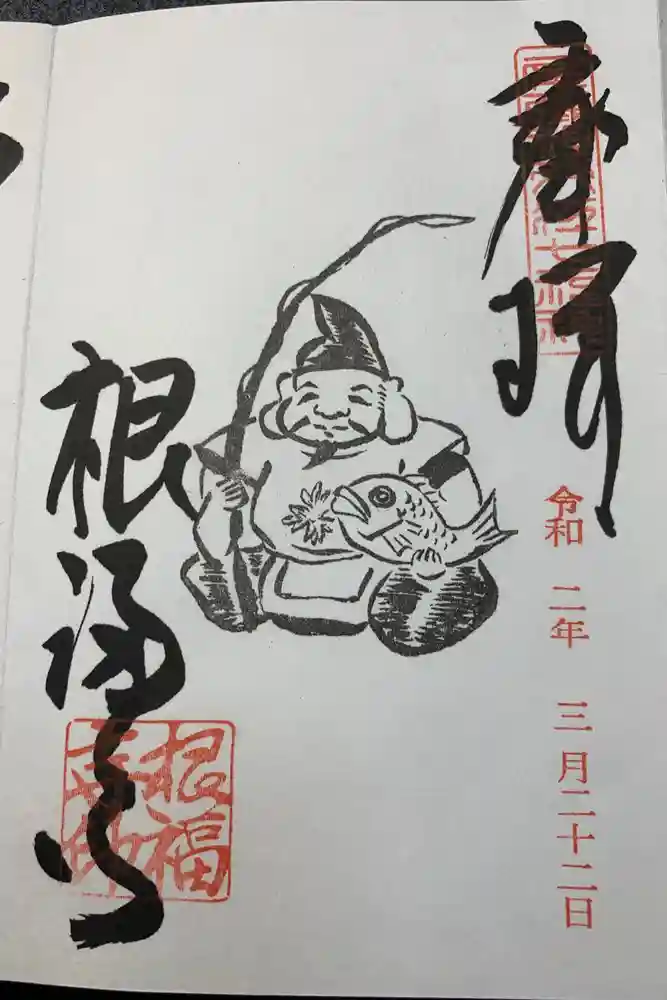 奉拝
令和 二年 三月二十二日
根福寺
根福
寺印